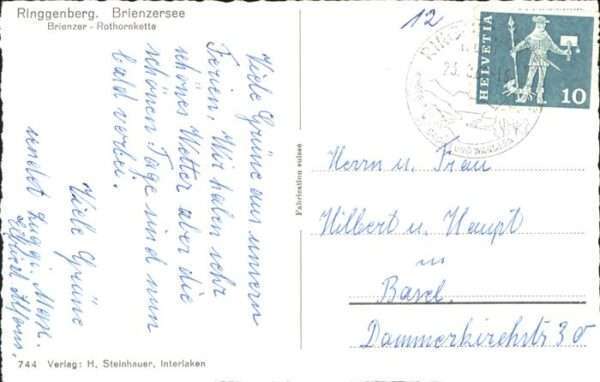 Ringgenberg. Brienzersee
Brienzer - Rothornkette
12
HELVETIA
10
Viele Grüsse aus unsern
Ferien. Wir haben sehr
schönes Wetter aber die
schönen Tage sind nun
bald vorbei.
Viele Grüsse
sendet
Fabrication suisse
Herrn u. Frau
Hilbert u. Haupt
in
Basel.
Dammerkirchstr 30
744 Verlag: H. Steinhauer, Interlaken